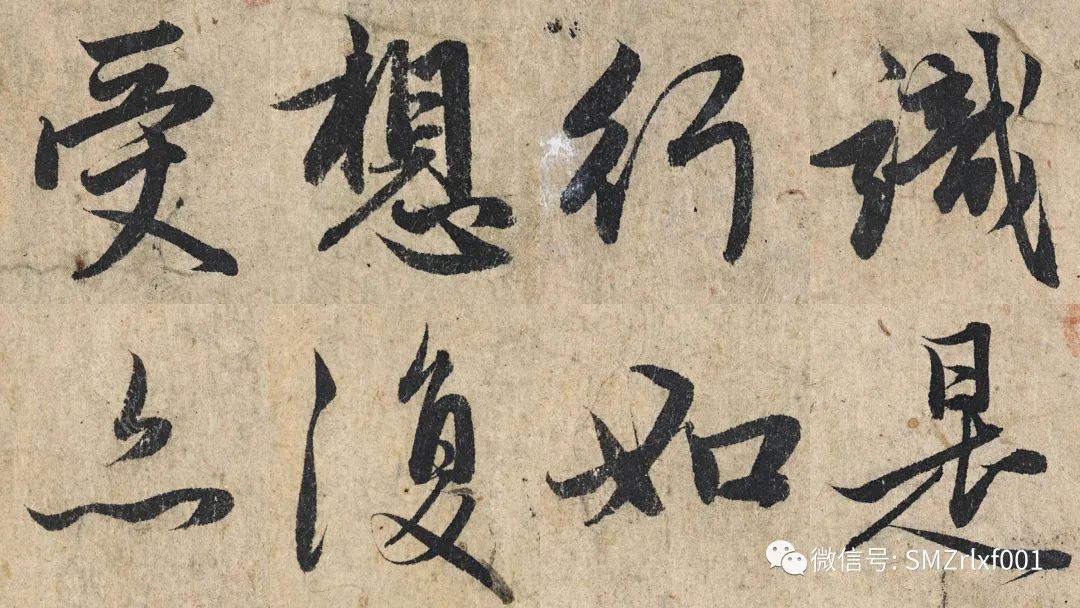 受想行識
亦復如是
微信号: SMZrlxf001